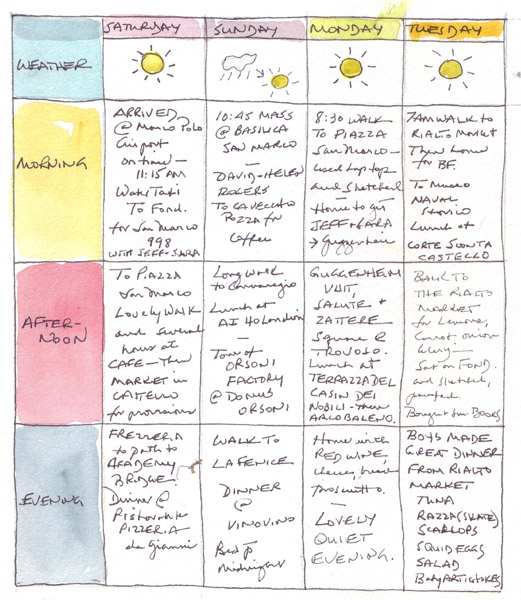 SATURDAY
SUNDAY
MONDAY
TUESDAY
WEATHER
MORNING
ARRIVED
@ Marco Polo
Airport
on time —
11:15 AM
Water Taxi
To Fond.
for San Marco
998
WITH JEFF + SARA
10:45 MASS
@ BASILICA
SAN MARCO
—
DAVID + HELEN
ROGERS
TO
POZZA for
Coffee
8:30 WALK
To PIAZZA
San Marco —
used lap top
and sketched
—
Home to get
JEFF + SARA
→ Guggenheim
7AM WALK to
RIALTO Market
Then home
for BF.
To Museo
NAVAL
STORICO
Lunch at
CORTE SCONTA
CASTELLO
AFTER-
NOON
To PIAZZA
San Marco
Lovely WALK
and several
hours at
CAFE — Then
MARKET in
CASTELLO
for provisions
Long walk
to Cannaregio
Lunch at
AI 40 Londoni
—
Tour of
ORSONI
FACTORY
@ Domus
ORSONI
GUGGENHEIM
VISIT,
SALUTE +
ZATTERE
Square @
TROVOSO.
Lunch at
TERRAZZA DEL
CASIN DEI
NOBILI — then
ARCOBALENO.
BACK TO
THE RIALTO
MARKET
for Lemons,
Carrot, onion
Celery —
Sat on FOND.
and sketched,
painted.
Bought fun BOOKS
EVENING
FREZZERIA
to path to
ACADEMY
BRIDGE.
Dinner @
Ristorante
PIZZERIA
da Gianni
WALK TO
LA FENICE
DINNER
@
VINO VINO
Bed @
Midnight
Home with
RED WINE,
cheese, bread
proscuitto.
—
LOVELY
QUIET
EVENING.
BOYS MADE
GREAT DINNER
FROM RIALTO
MARKET
TUNA
RAZZA (SKATE)
SCALLOPS
SQUID EGGS
SALAD
Baby ARTICHOKES